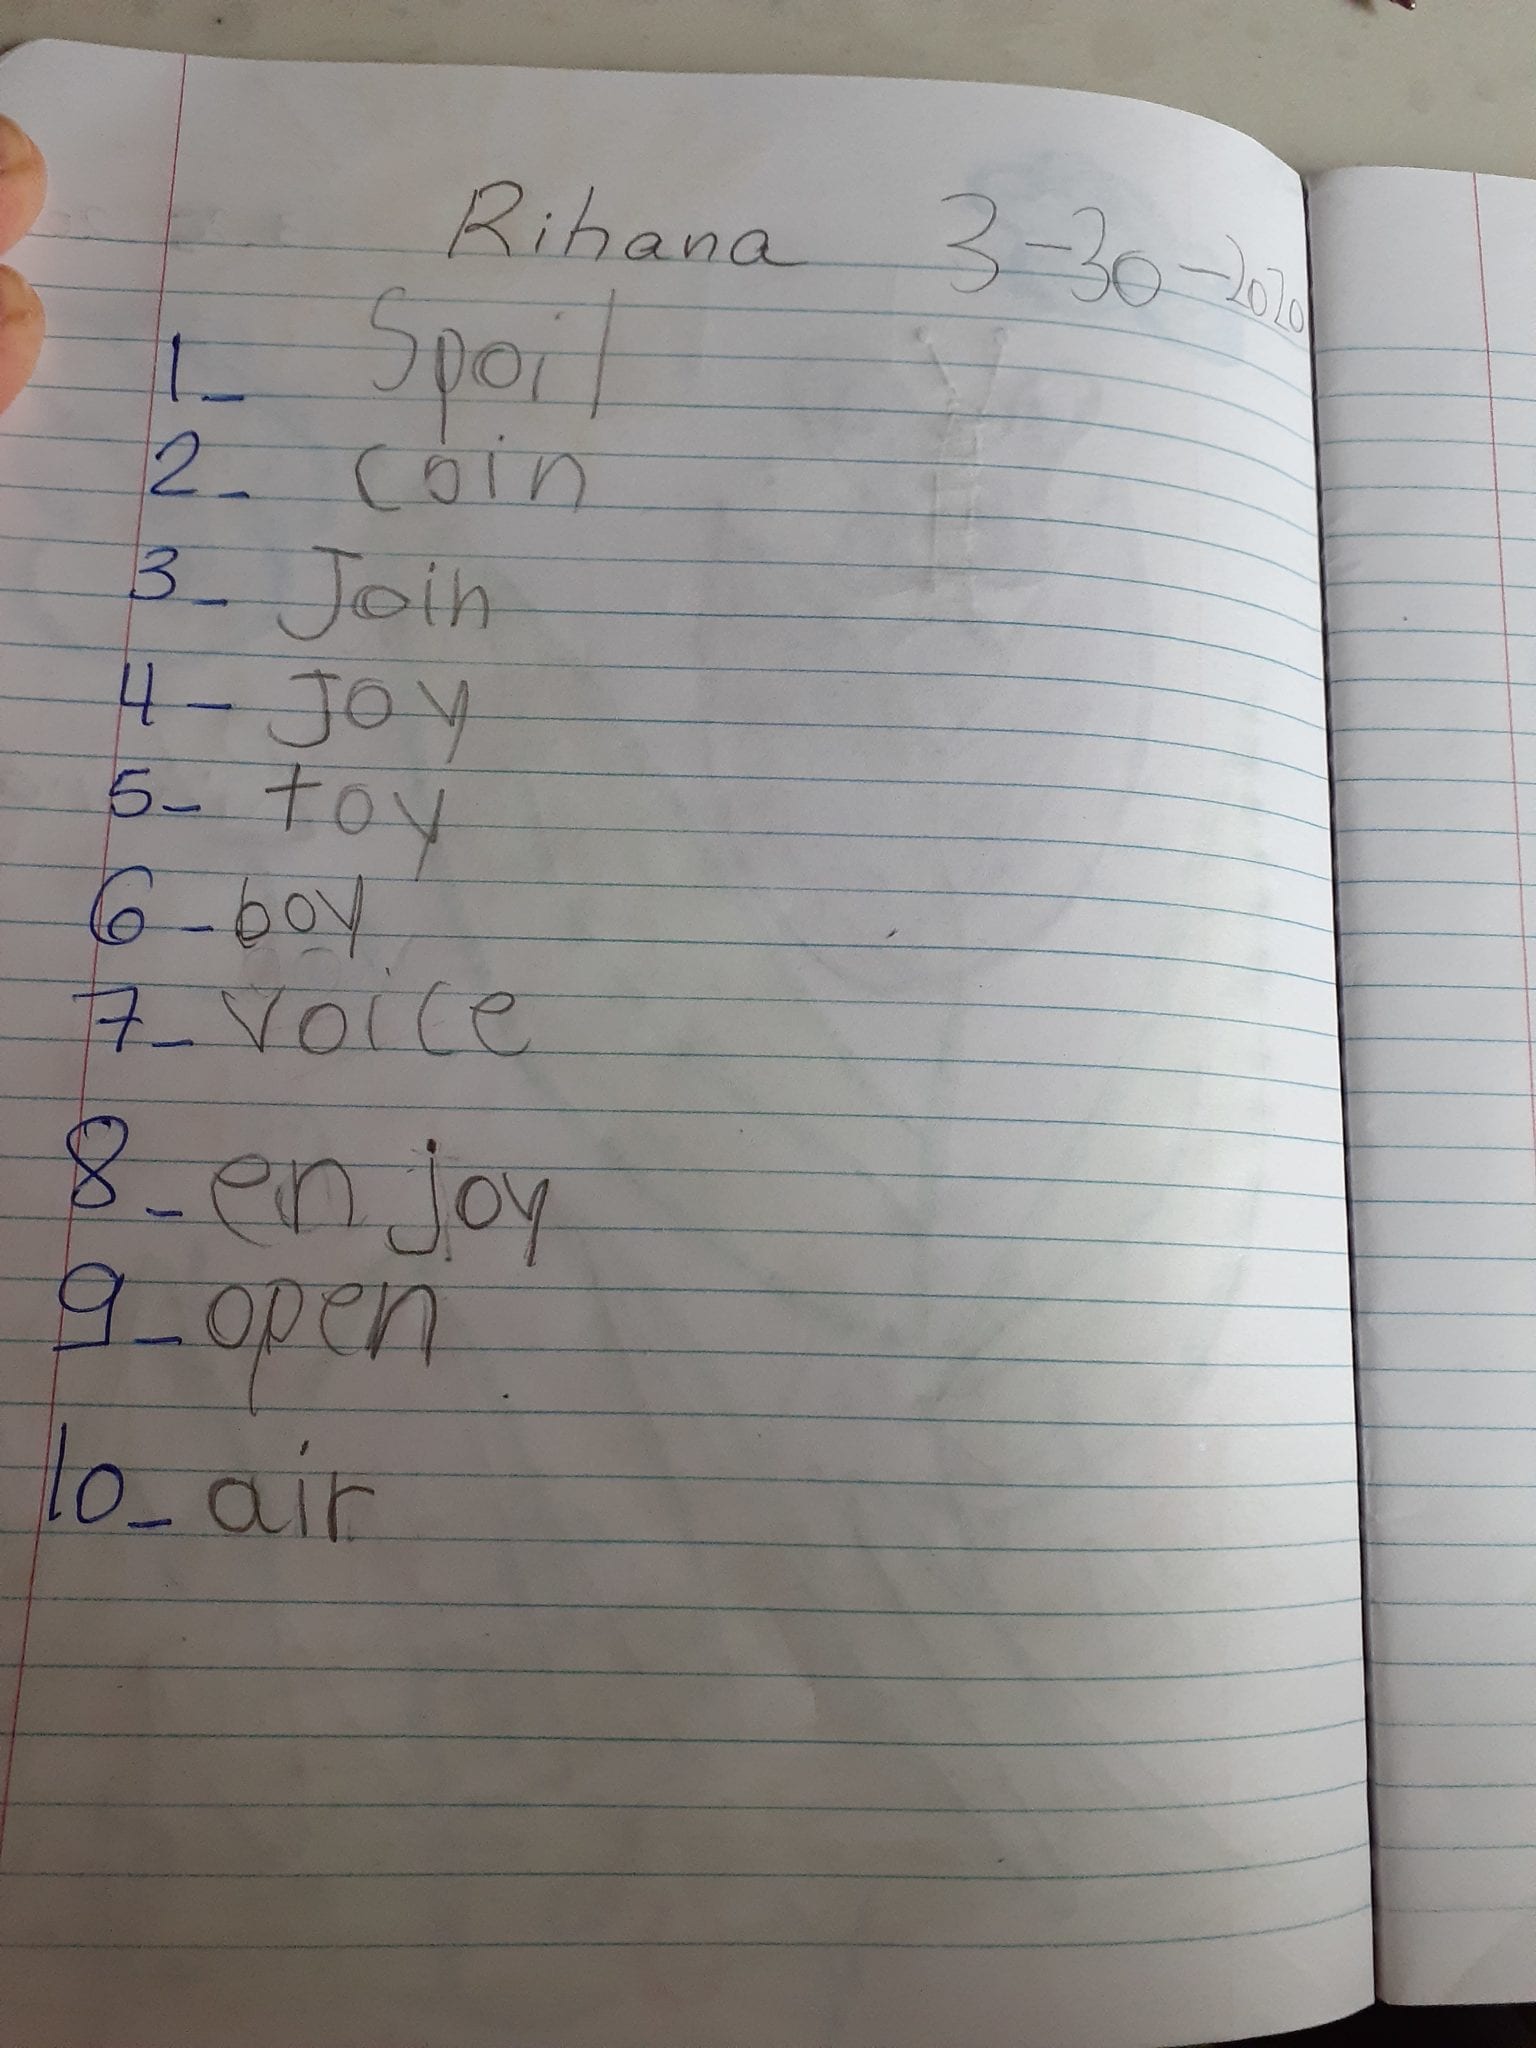 Rihana 3-30-2020
1_ Spoil
2_ coin
3_ Join
4_ Joy
5_ toy
6_ boy
7_ voice
8_ en joy
9_ open
10_ air